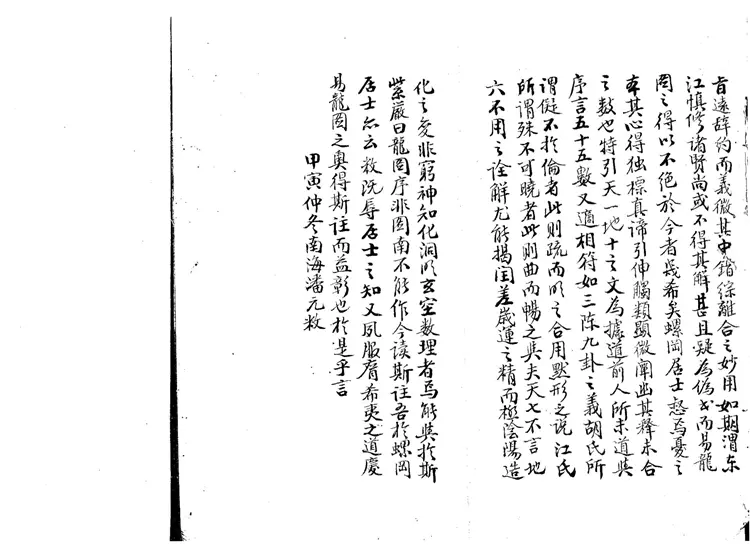 旨遠辞約而義微其中錯综離合之妙用如期渭东
江慎修诸贤尚或不得其解甚且疑為偽书而易龍
图之得以不绝於今者幾希矣螺岡居士怒焉憂之
本其心得独標真諦引伸觸類顕微阐幽其釋未合
之数也特引天一地十之文為據道前人所未道其
序言五十五数又適相符如三陈九卦之義胡氏所
谓儗不於倫者此则疏而明之合用黙形之说江氏
所谓殊不可曉者此则曲而暢之其夫天七不言地
六不用之诠解尤能揭闰差歲運之精而極陰陽造
化之变非窮神知化洞明玄空数理者焉能與於斯
紫巖曰龍图序非图南不能作今读斯註吾於螺岡
居士亦云敉浣辱居士之知又夙服膺希夷之道慶
易龍图之奥得斯註而益彰也於是乎言
甲寅仲冬南海潘元敉